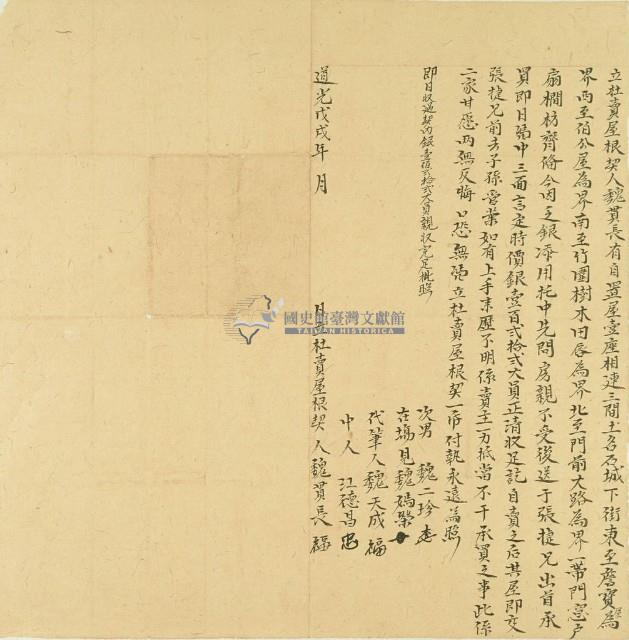 立杜賣屋根契人魏貫長有自置屋壹座相連三間土名石城下街東至詹寶為
界西至伯公屋為界南至竹圍樹木田唇為界北至門前大路為界一帶門窓戶
扇橺枋齊俻今因乏銀添用托中先問房親不受後送于張捷兄出首承
買即日仝中三面言定時價銀壹百弍拾弍大員正清収足訖自賣之后其屋即交
張捷兄前去子孫管業如有上手来歷不明係賣主一力抵當不干承買之事此係
二家甘愿兩無反悔口恐無憑立杜賣屋根契一帋付執永遠為照
即日収過契內銀壹百弍拾弍大員親収完足批照
次男 魏二珍
在塲見魏嬌榮
代筆人魏天成 福
中人 江德昌 忠
道光戊戌年 月 日立杜賣屋根契人魏貫長 福
國史館臺灣文獻館
TAIWAN HISTORICA